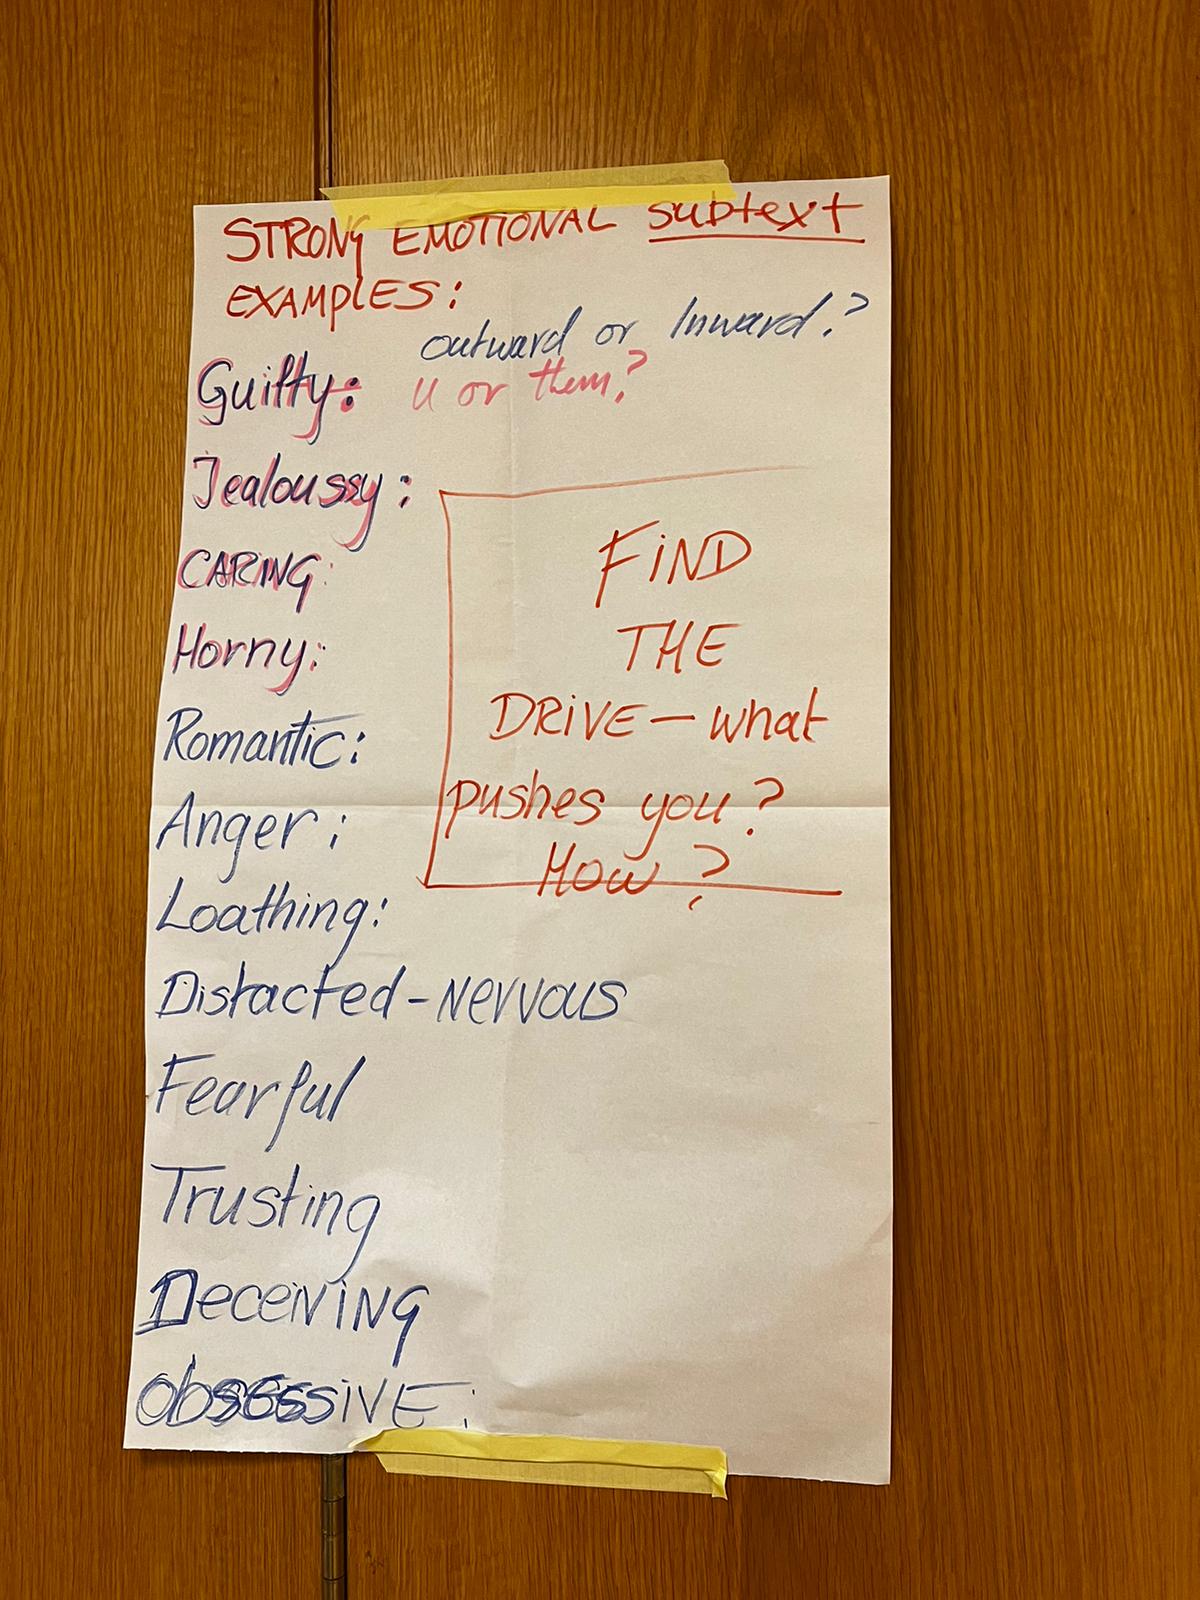 STRONG EMOTIONAL subtext
EXAMPLES:
outward or Inward?
Guilty: u or them?
Jealoussy:
CARING:
Horny:
Romantic:
Anger:
Loathing:
Distacted-Nervous
Fearful
Trusting
Deceiving
obsessive:
FIND
THE
DRIVE—what
pushes you?
How?